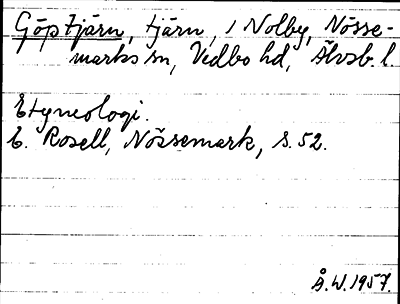 Göptjärn, tjärn, i Nolby, Nösse-
marks sn, Vedbo hd, Älvsb. l.
Etymologi.
E. Rosell, Nössemark, s. 52.
Å.W. 1957.